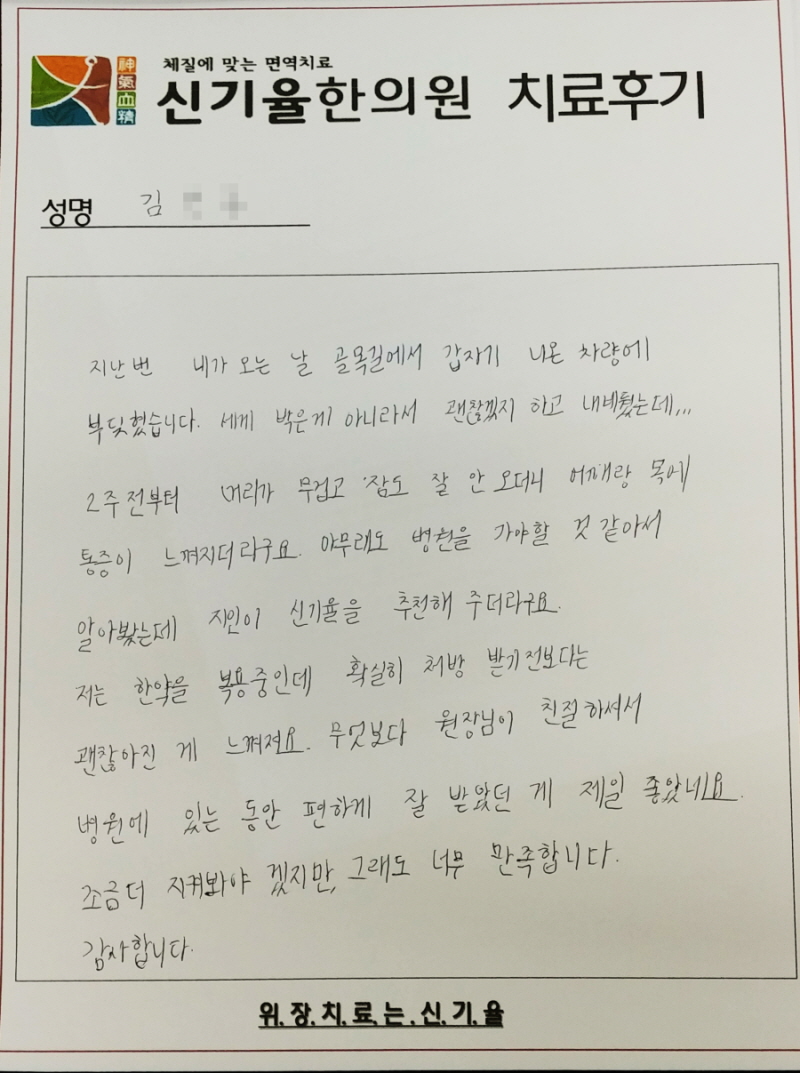 체질에 맞는 면역치료
신기율한의원 치료후기
神氣血精
성명 김
지난번 비가 오는 날 골목길에서 갑자기 나온 차량에
부딪혔습니다. 세게 박은게 아니라서 괜찮겠지 하고 내비뒀는데...
2주전부터 머리가 무겁고 잠도 잘 안 오더니 어깨랑 목에
통증이 느껴지더라구요. 아무래도 병원을 가야할 것 같아서
알아봤는데 지인이 신기율을 추천해 주더라구요.
저는 한약을 복용중인데 확실히 처방 받기전보다는
괜찮아진 게 느껴져요. 무엇보다 원장님이 친절하셔서
병원에 있는 동안 편하게 잘 받았던 게 제일 좋았네요.
조금더 지켜봐야 겠지만, 그래도 너무 만족합니다.
감사합니다.
위.장.치.료.는.신.기.율